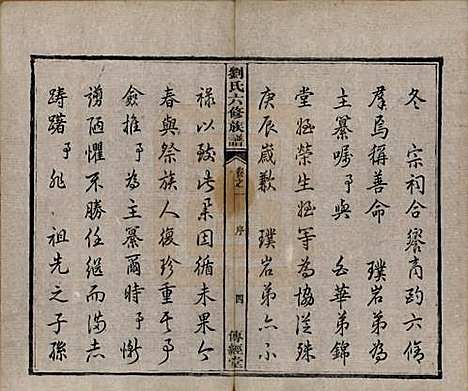 冬　宗祠合饗商趵六修
羣焉稱善命　璞岩弟為
主纂嘱予與　白華弟錦
堂姪榮生姪等為協從殊
庚辰歲歉　璞岩弟亦示
劉氏六修族譜　卷之一　序　四　傳經堂
祿以致此舉因循未果今
春與祭族人復珍重其事
僉推予為主纂爾時予慚
謭陋懼不勝任繼而渉志
躊躇予非祖先之子孫